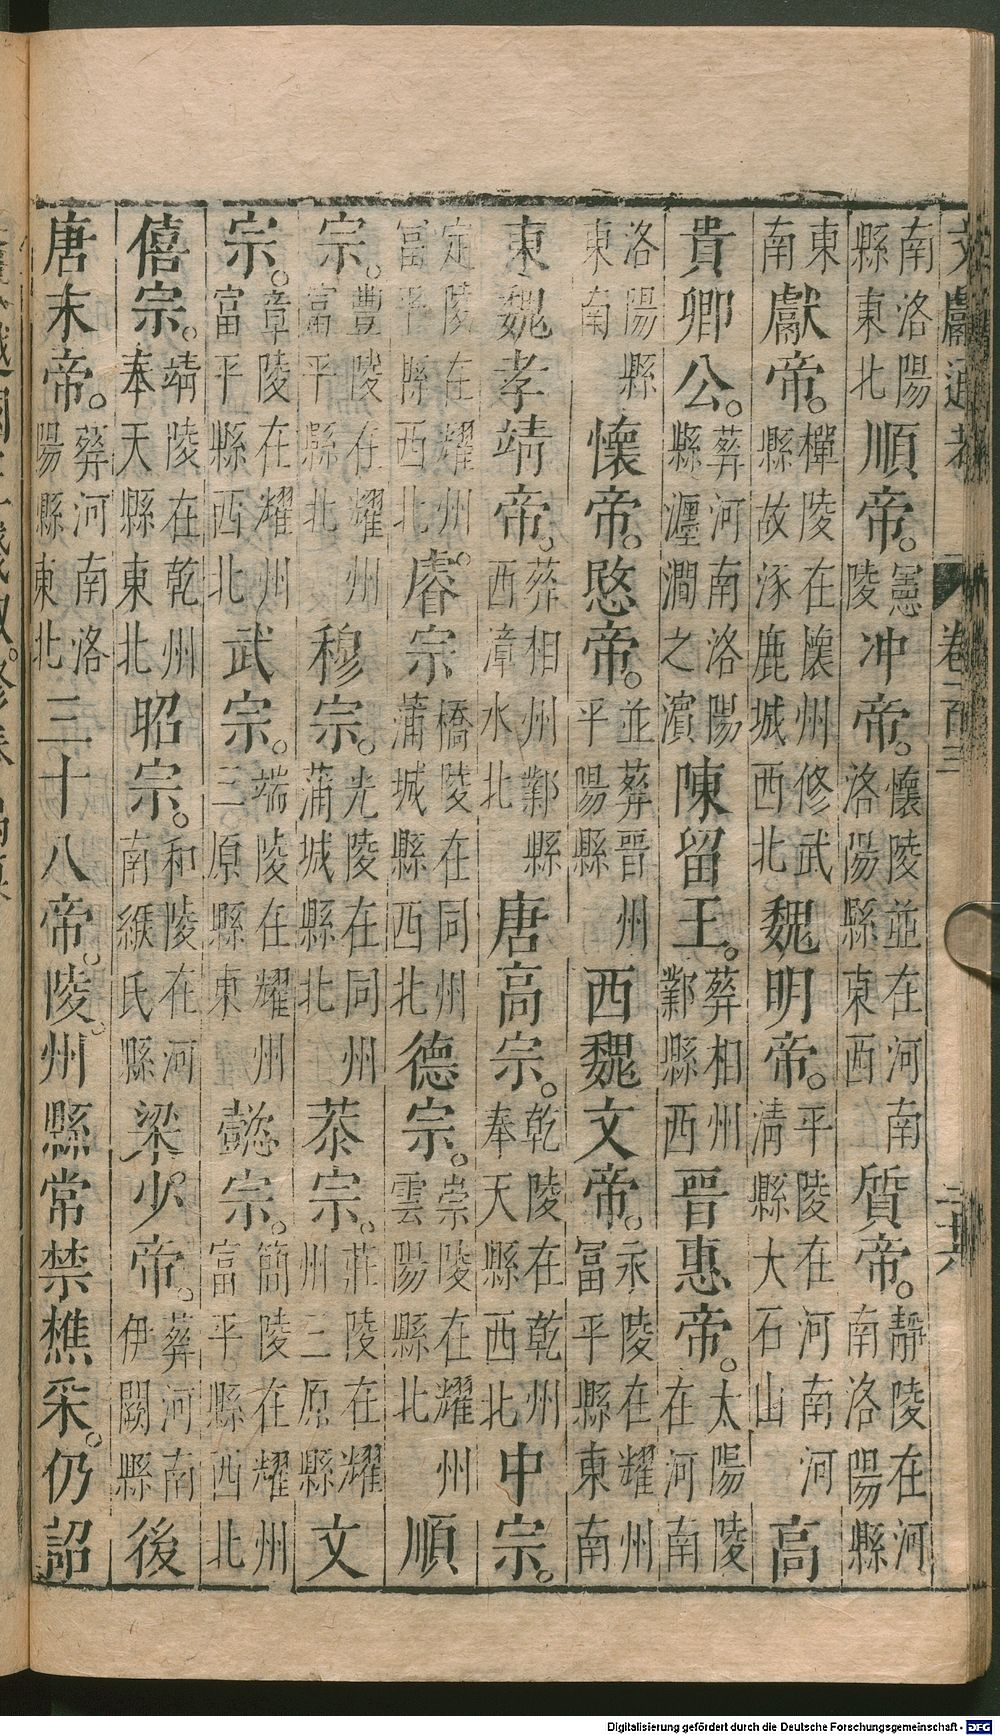 文獻通考 卷一百三 二十六
南洛陽縣東北順帝。憲陵冲帝。懷陵並在河南洛陽縣東西質帝。靜陵在河南洛陽縣
東南獻帝。禪陵在懷州修武縣故涿鹿城西北魏明帝。平陵在河南河清縣大石山高
貴卿公。葬河南洛陽縣瀍澗之濵陳留王。葬相州鄴縣西晉惠帝。太陽陵在河南
洛陽縣東南懷帝。愍帝。並葬晉州平陽縣西魏文帝。永陵在耀州富平縣東南
東魏孝靖帝。葬相州鄴縣西漳水北唐高宗。乾陵在乾州奉天縣西北中宗。
定陵在耀州富平縣西北。睿宗橋陵在同州蒲城縣西北德宗。崇陵在耀州雲陽縣北順
宗。豐陵在耀州富平縣北穆宗。光陵在同州蒲城縣北恭宗。莊陵在耀州三原縣文
宗。章陵在耀州富平縣西北武宗。端陵在耀州三原縣東懿宗。簡陵在耀州富平縣西北
僖宗。靖陵在乾州奉天縣東北昭宗。和陵在河南緱氏縣梁少帝。葬河南伊闕縣後
唐末帝。葬河南洛陽縣東北三十八帝。陵。州縣常禁樵采。仍詔
Digitalisierung gefördert durch die Deutsche Forschungsgemeinschaft - DFG